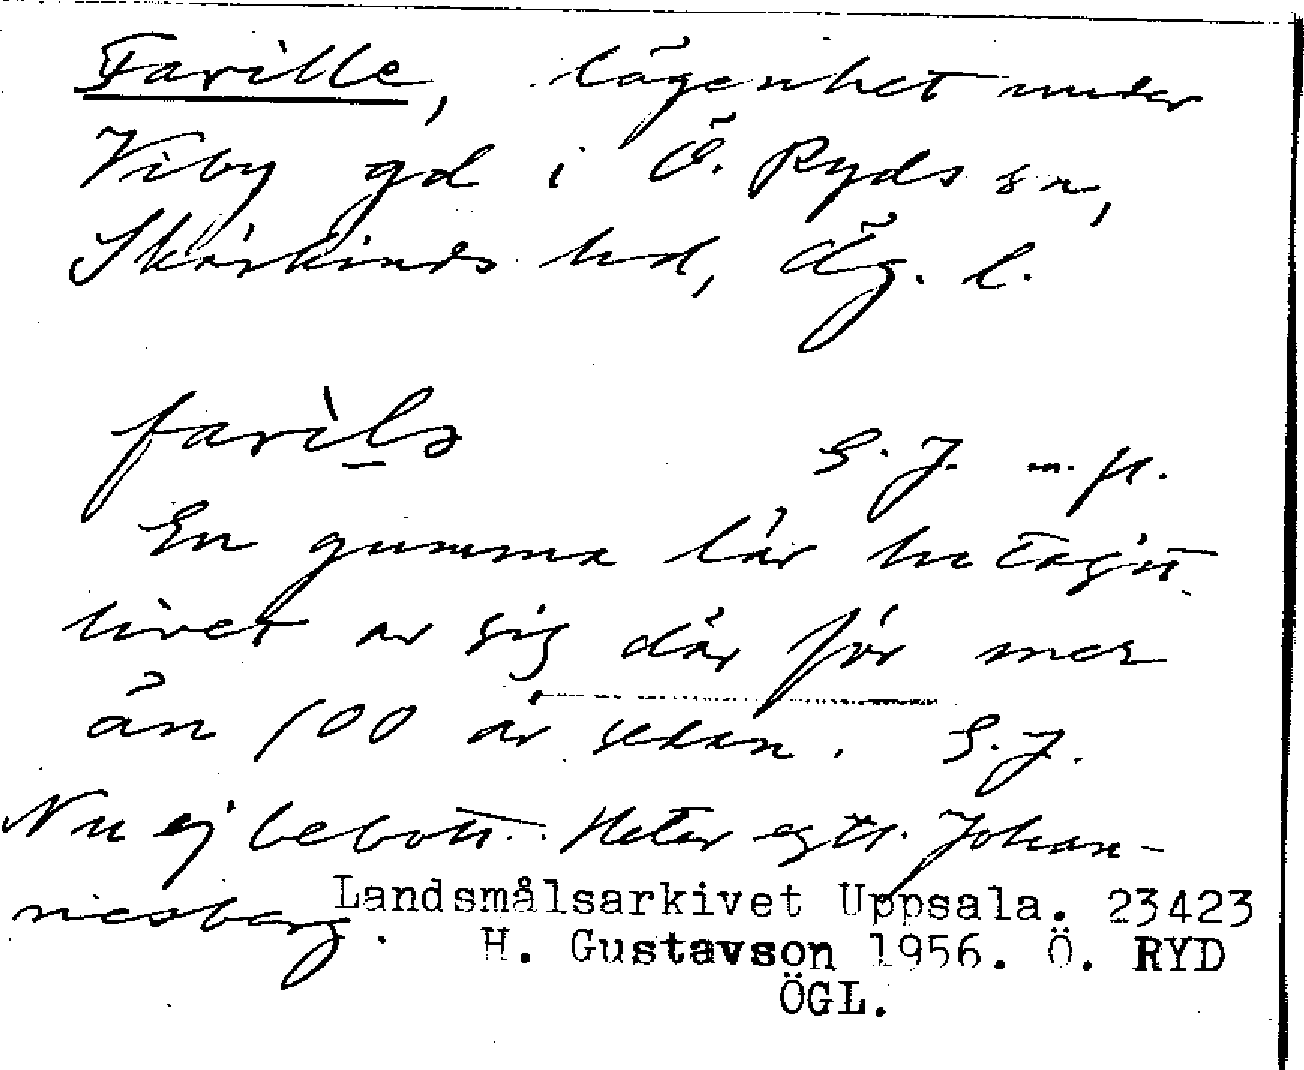 Farille, lägenhet under
Viby gd i Ö. Ryds sn,
Skärkinds hd, Ög. l.
farìlə
G. J. m. fl.
En gumma lär ha tagit
livet av sig där för mer
än 100 år sedan. G. J.
Nu ej bebott. Heter egtl. Johan-
nesberg.
Landsmålsarkivet Uppsala. 23423
H. Gustavson 1956. Ö. RYD
ÖGL.